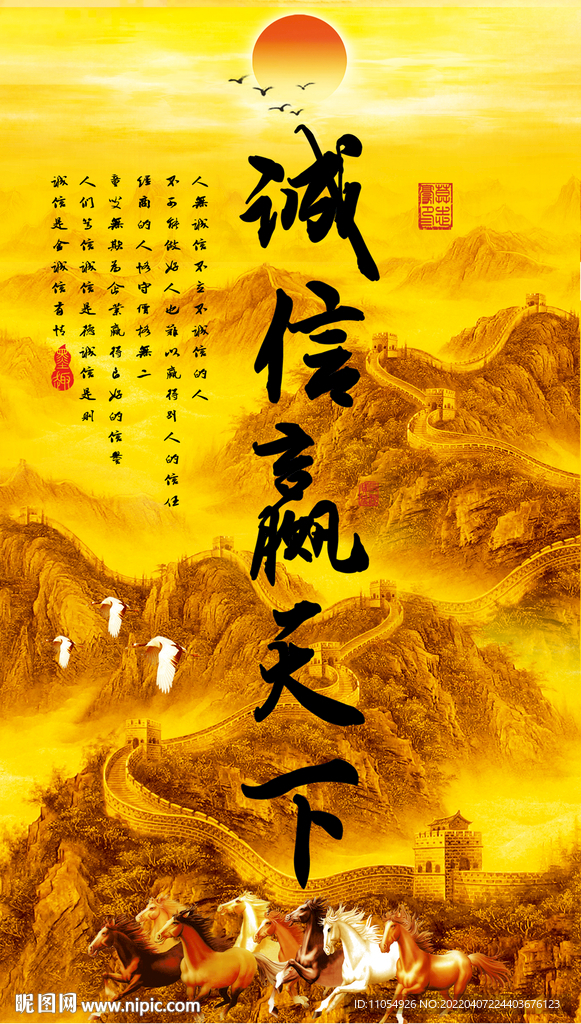 诚信赢天下
人無诚信不立不诚信的人
不可能做好人也难以赢得别人的信任
经商的人恪守价格無二
童叟無欺为企業赢得良好的信誉
人们笃信诚信是德诚信是则
诚信是金诚信有情
昵图网 www.nipic.com
ID:11054926 NO:20220407224403676123